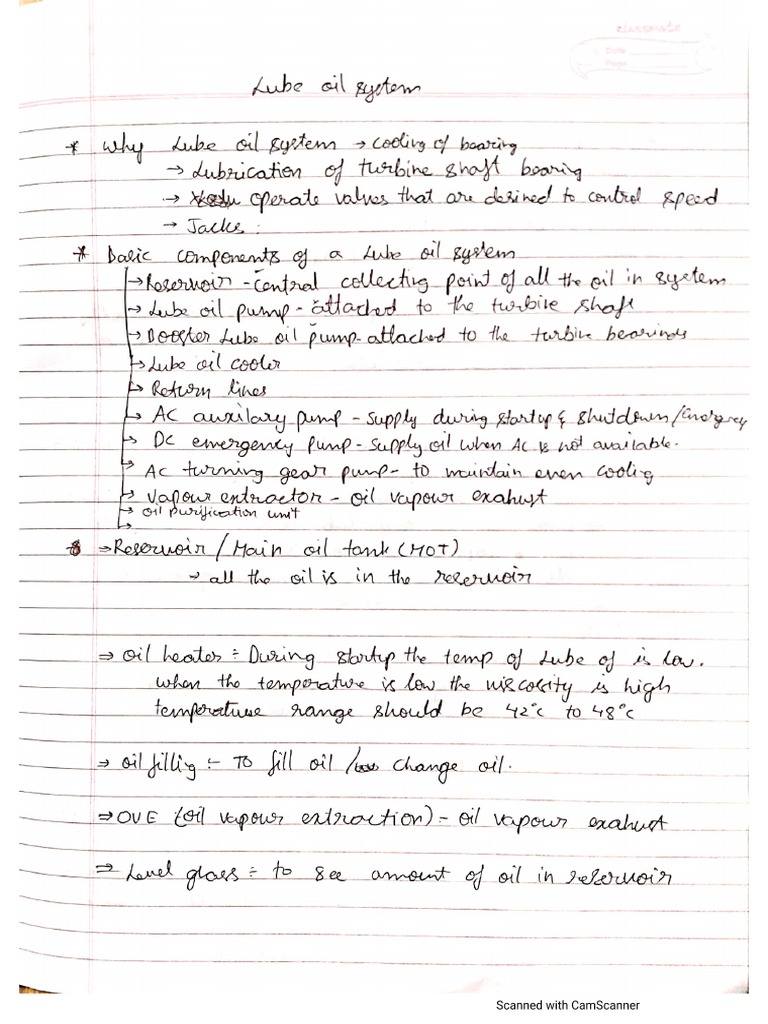 classmate
Date
Page
Lube oil system
* Why Lube oil system → cooling of bearing
→ Lubrication of turbine shaft bearing
→ operate valves that are desined to control speed
→ Jacks :
* Basic components of a Lube oil system
→ Reservoir - Central collecting point of all the oil in system
→ Lube oil pump - attached to the turbine shaft
→ Booster Lube oil pump - attached to the turbine bearings
→ Lube oil cooler
→ Return lines
→ AC auxilary pump - supply during startup & shutdown/Emergency
→ DC emergency pump - supply oil when AC is not available.
→ AC turning gear pump - to maintain even cooling
→ Vapour extractor - oil vapour exahust
→ oil purification unit
→
* → Reservoir / Main oil tank (MOT)
→ all the oil is in the reservoir
⇒ oil heater ÷ During startup the temp of Lube of is low.
when the temperature is low the viscosity is high
temperature range should be 42°c to 48°c
⇒ oil fillig :- To fill oil / change oil.
⇒ OVE (oil vapour extraction) - oil vapour exahust
⇒ Level glass ÷ to see amount of oil in reservoir
Scanned with CamScanner